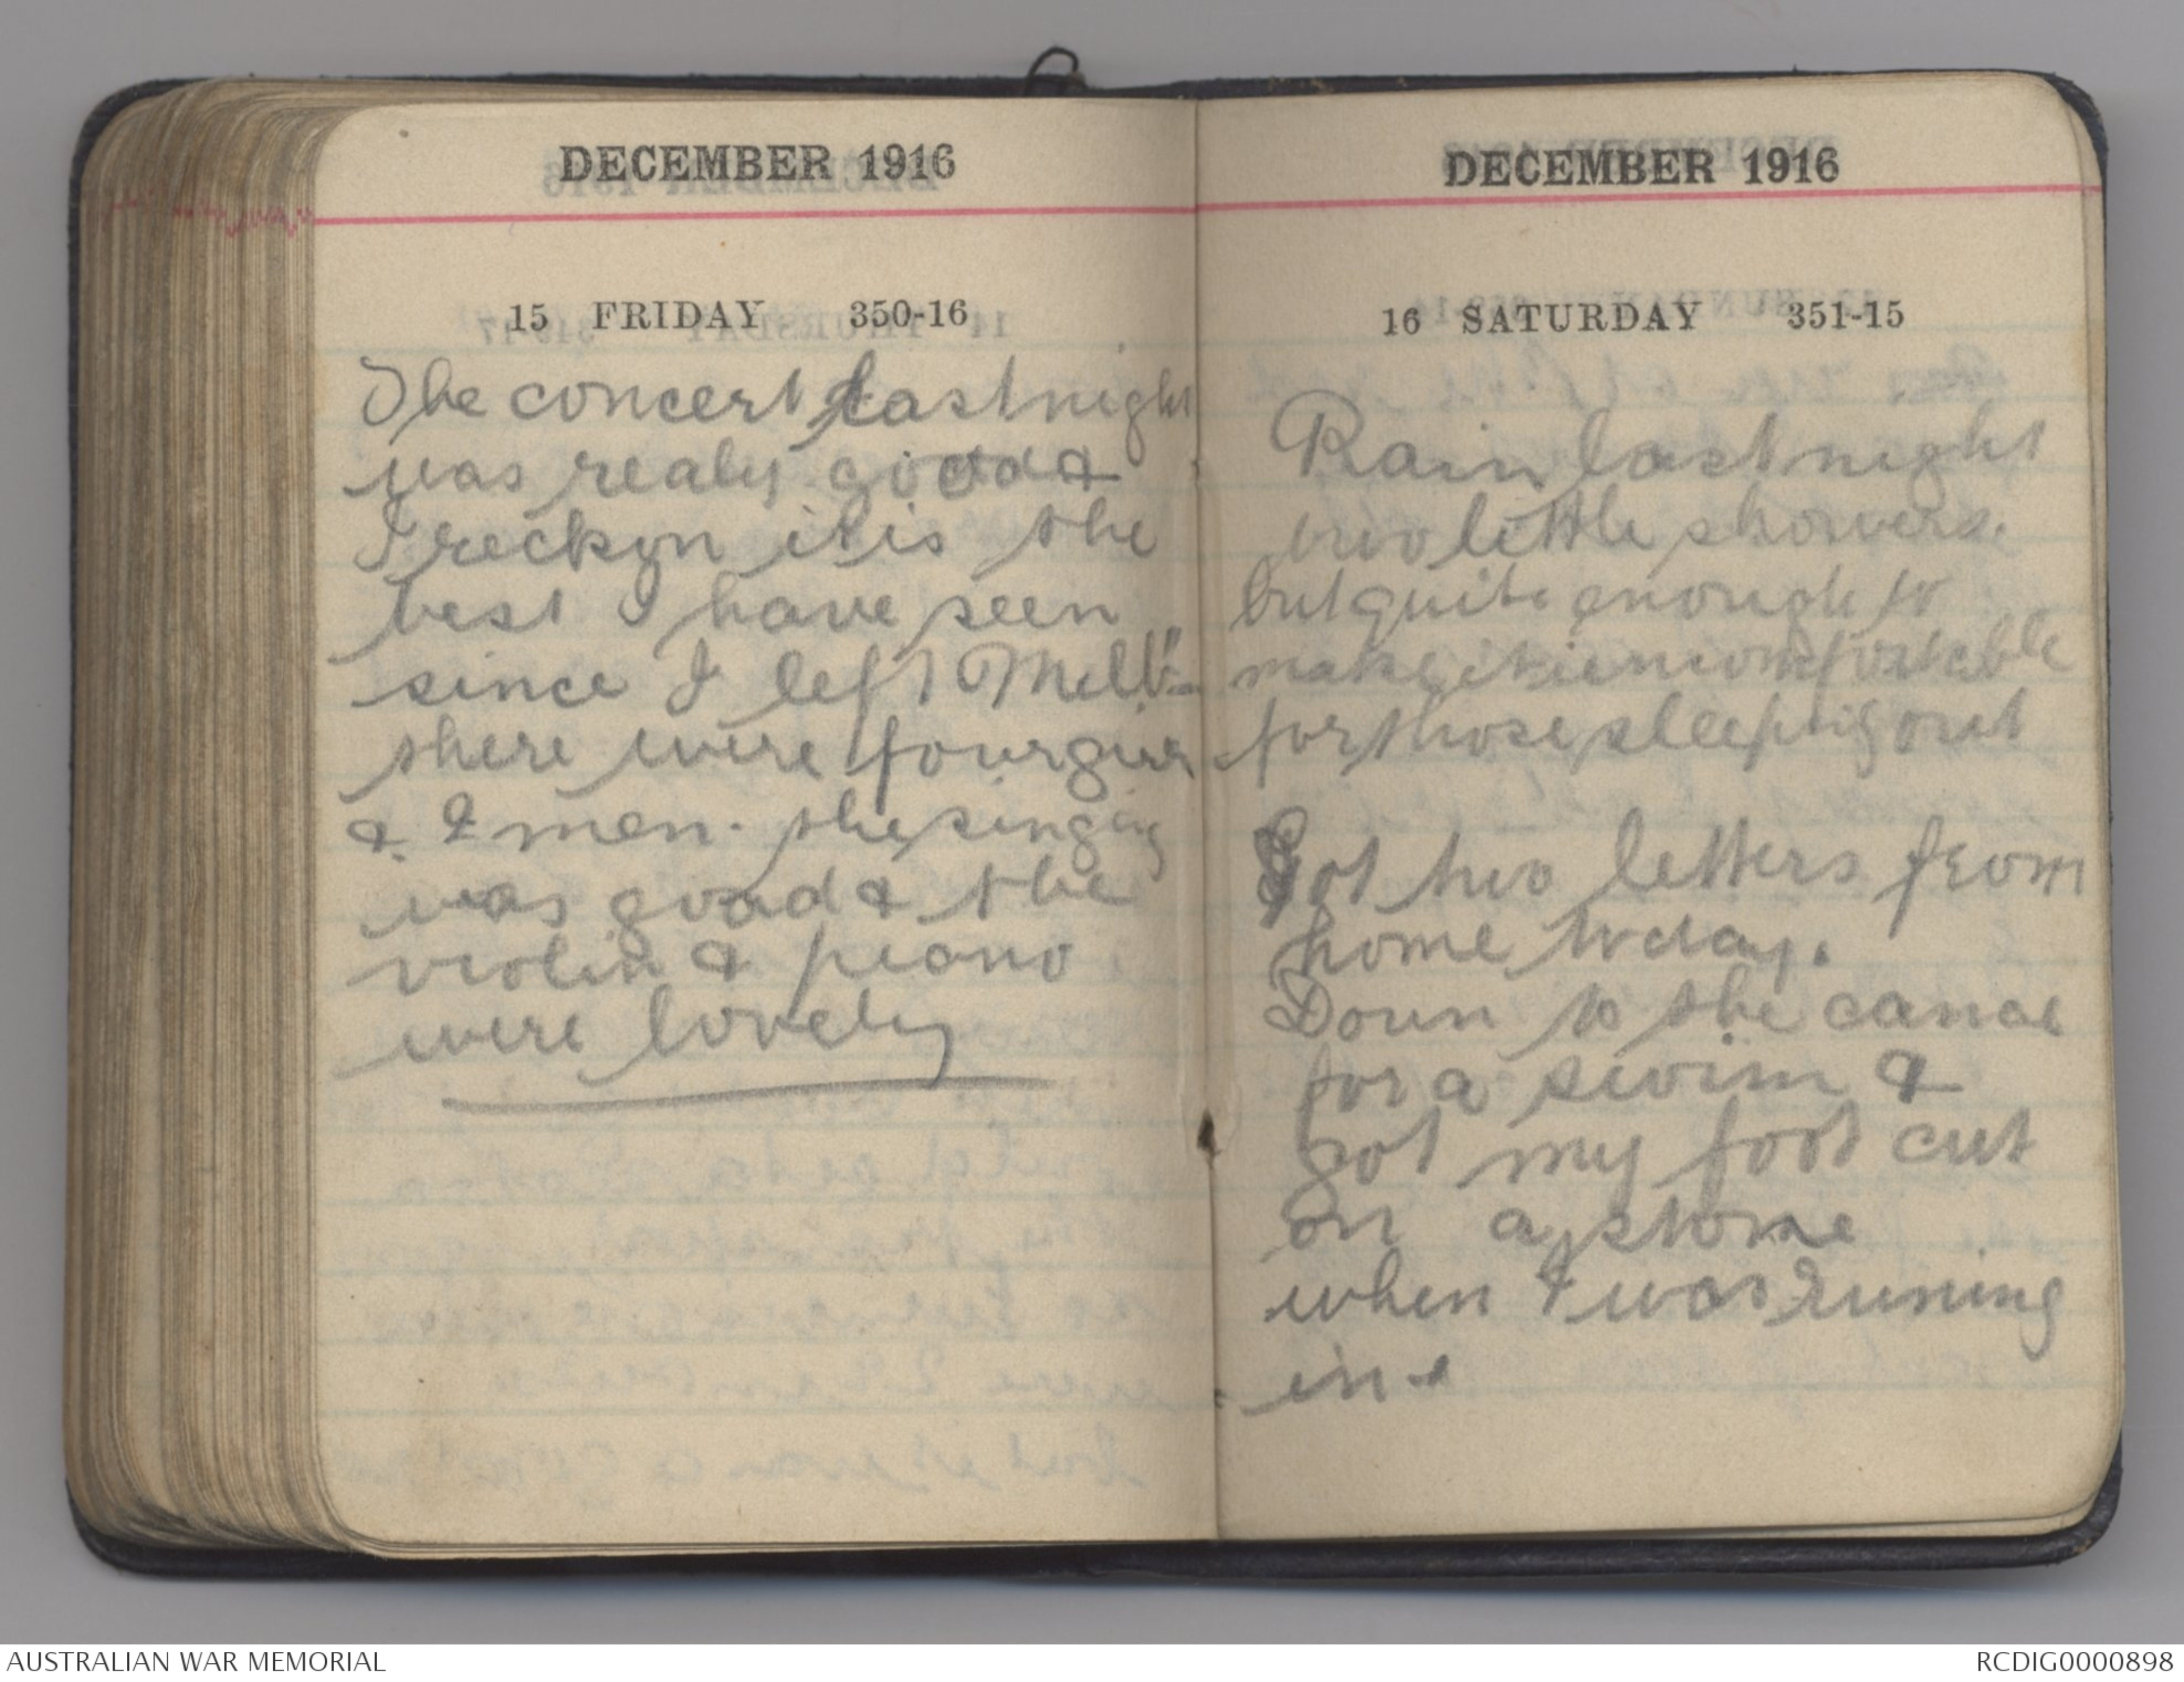 DECEMBER 1916
15 FRIDAY 350-16
The concert last night
was realy good &
I reckon it is the
best I have seen
since I left Melb"
there were four
& 2 men. the singing
was good & the
violin & piano
were lovely
DECEMBER 1916
16 SATURDAY 351-15
Rain last night
two little showers.
but quite enough to
make it uncomfortable
for those sleeping out
Got two letters from
home today.
Down to the canal
for a swim &
got my foot cut
on a stone
when I was runing
in.
AUSTRALIAN WAR MEMORIAL
RCDIG0000898